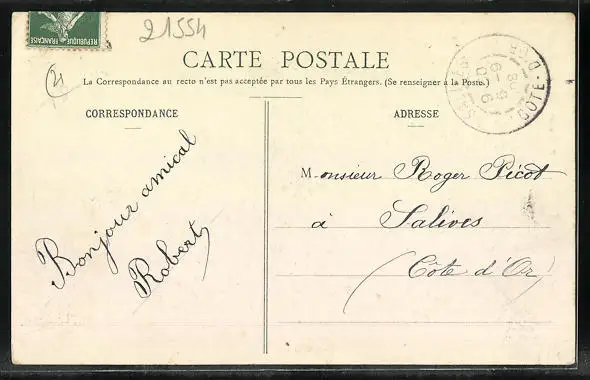 REPUBLIQUE FRANÇAISE
21554
21
CARTE POSTALE
La Correspondance au recto n'est pas acceptée par tous les Pays Étrangers. (Se renseigner à la Poste.)
CORRESPONDANCE
ADRESSE
Bonjour amical
Robert
Monsieur Roger Picot
à Salives
(Côte d'Or)
CÔTE-D'OR